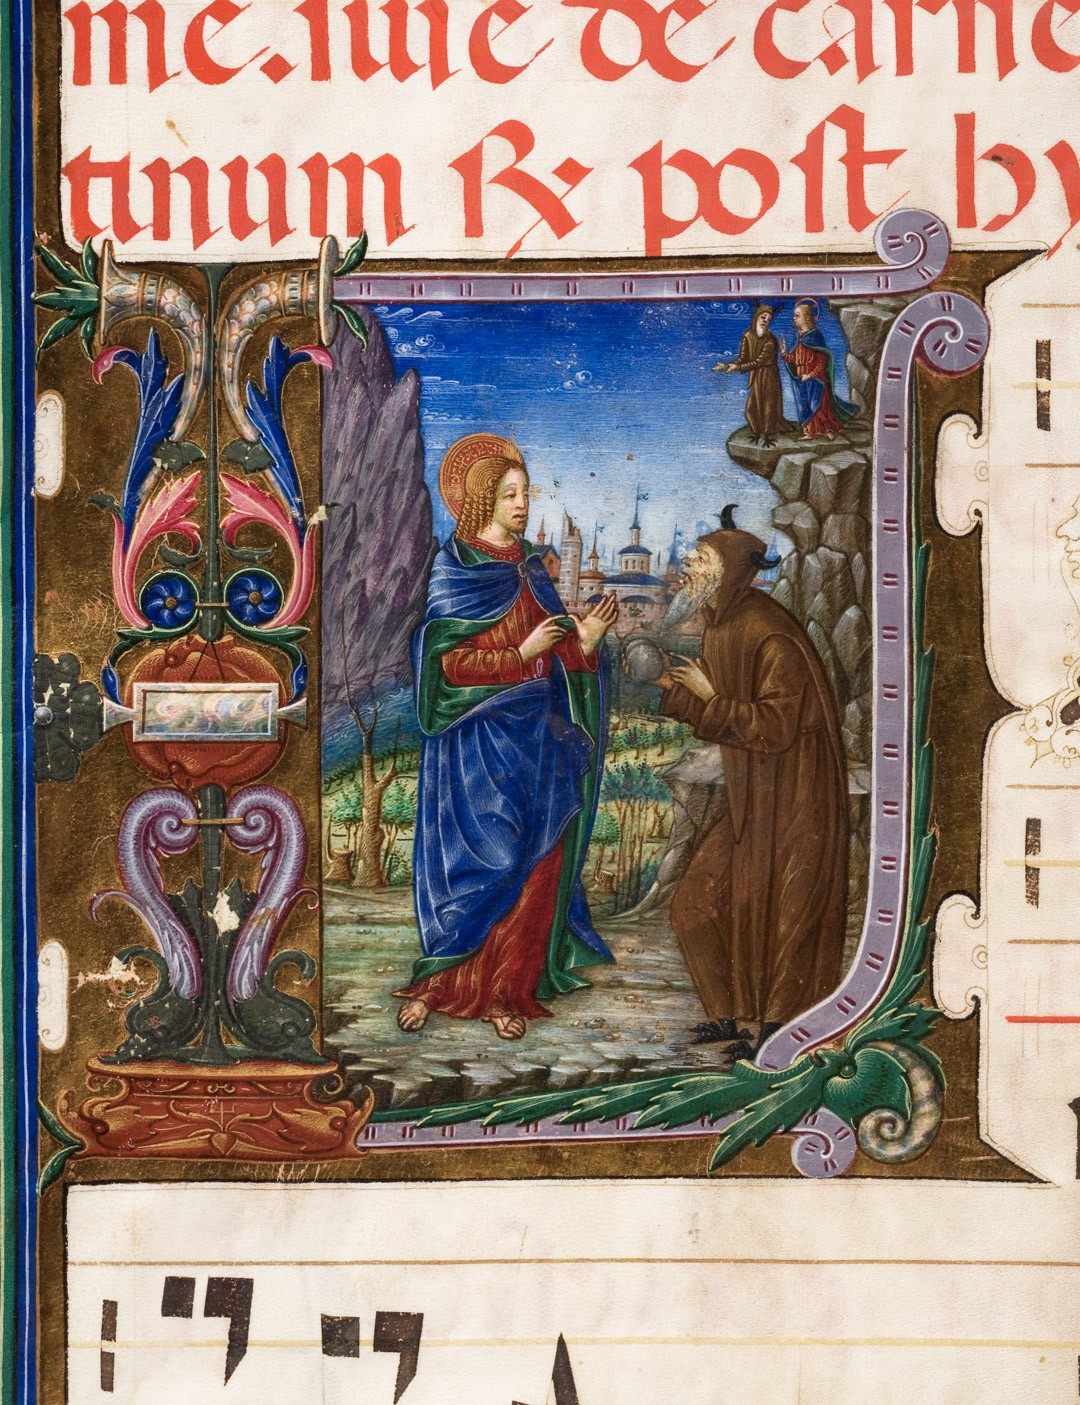 me. sive de carne
tinum ℟ post hy